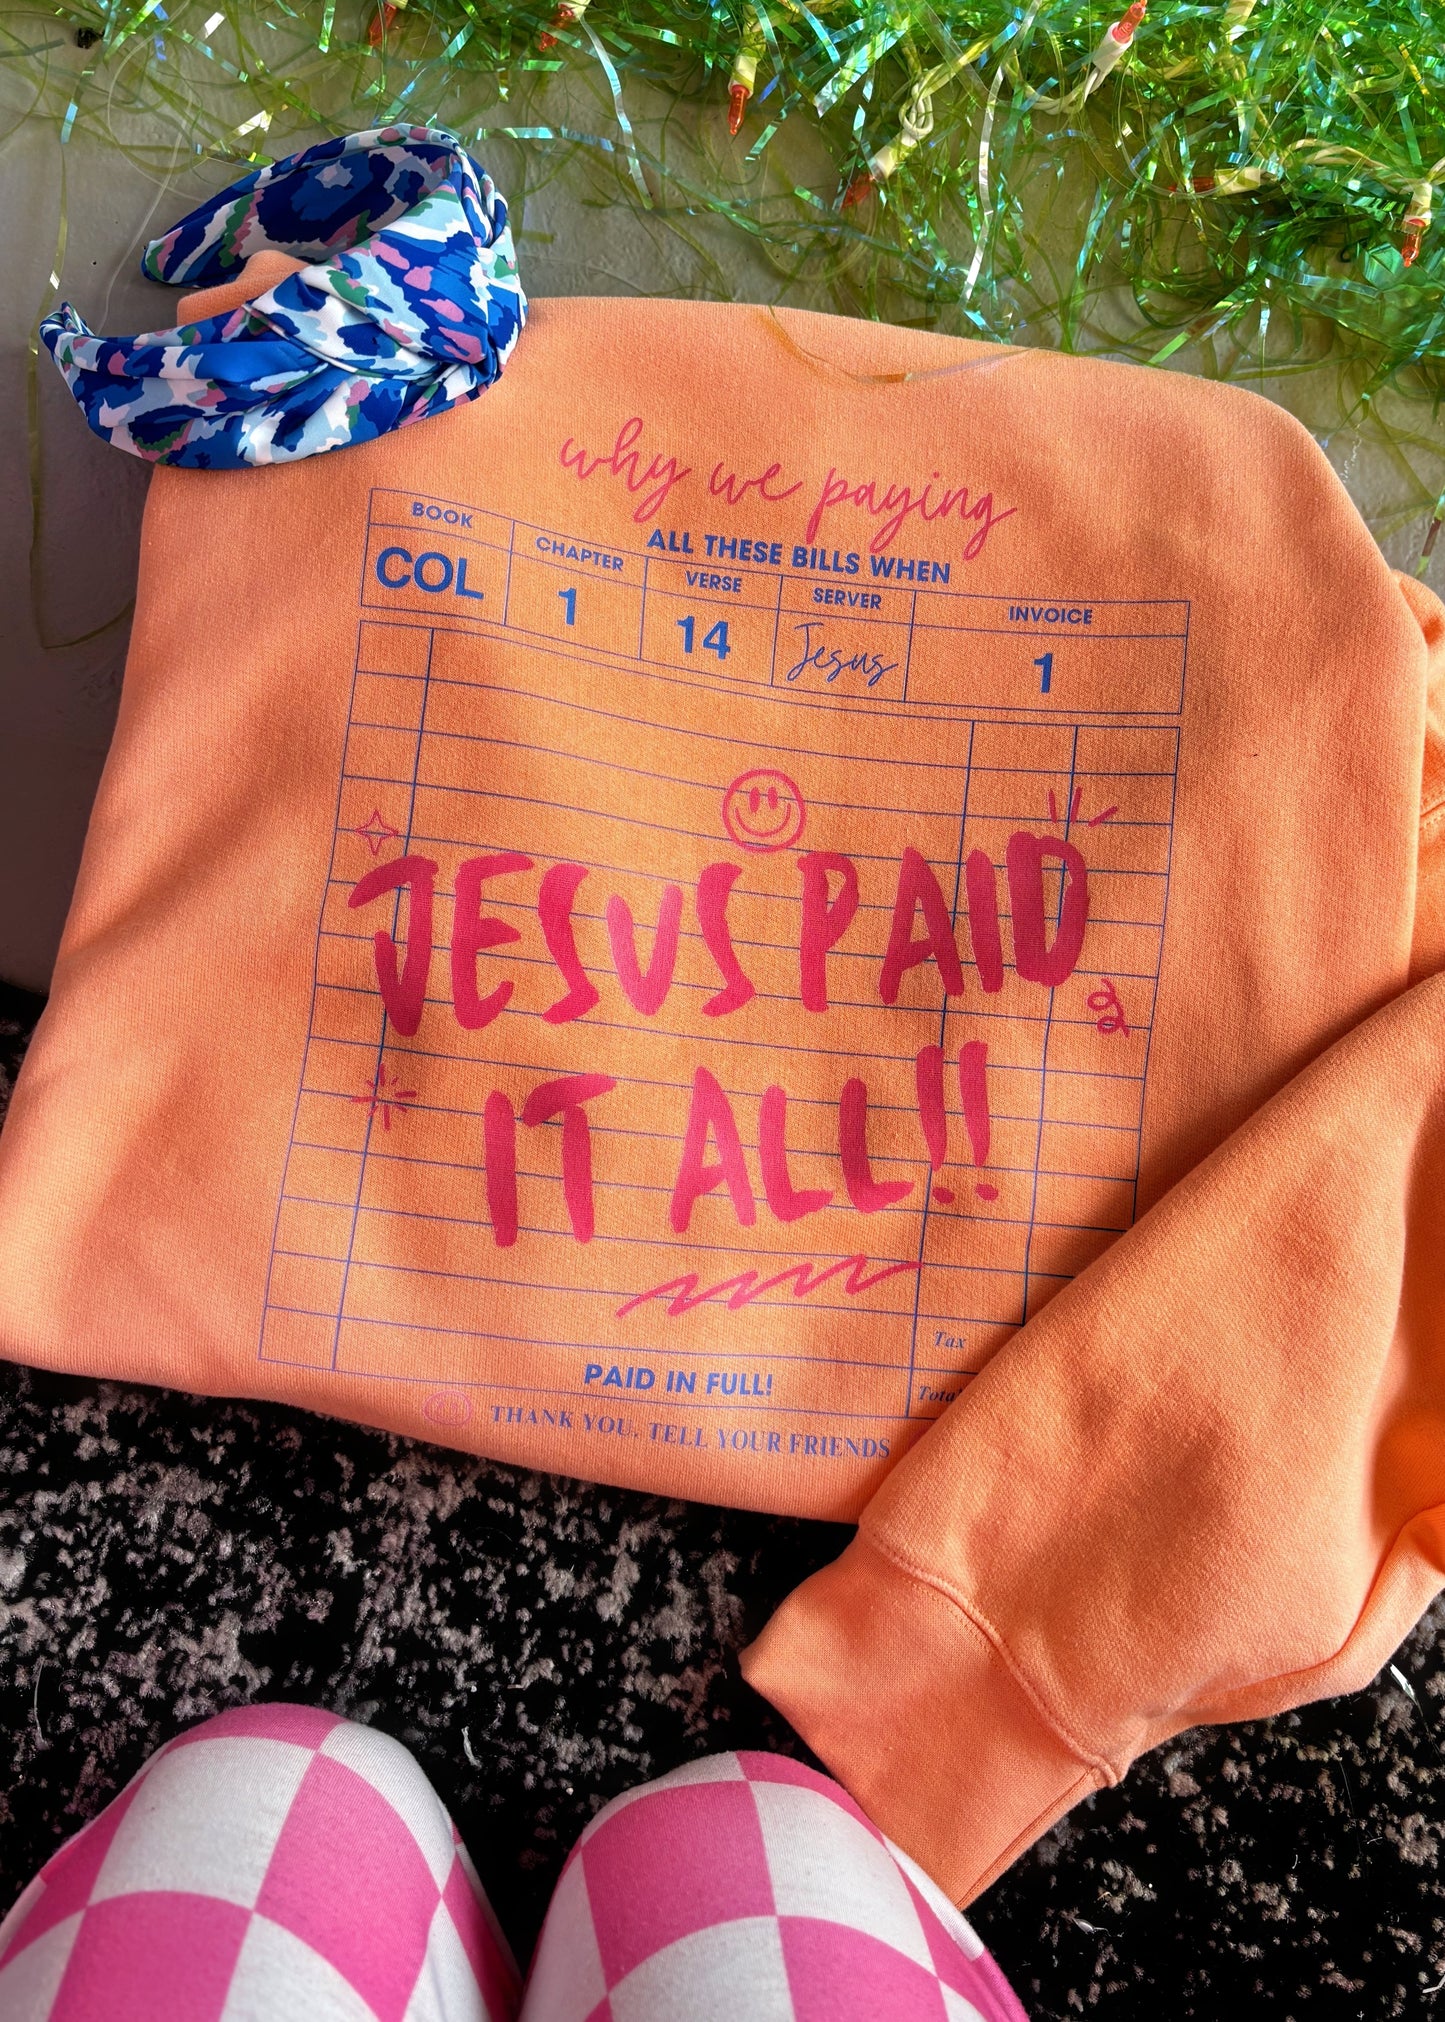 why we paying
ALL THESE BILLS WHEN
BOOK CHAPTER VERSE SERVER INVOICE
COL 1 14 Jesus 1
JESUS PAID
IT ALL!!
Tax
PAID IN FULL!
THANK YOU. TELL YOUR FRIENDS